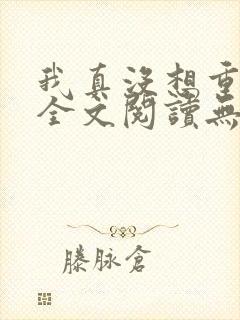 我真没想重
全文閱讀無
滕脉倉